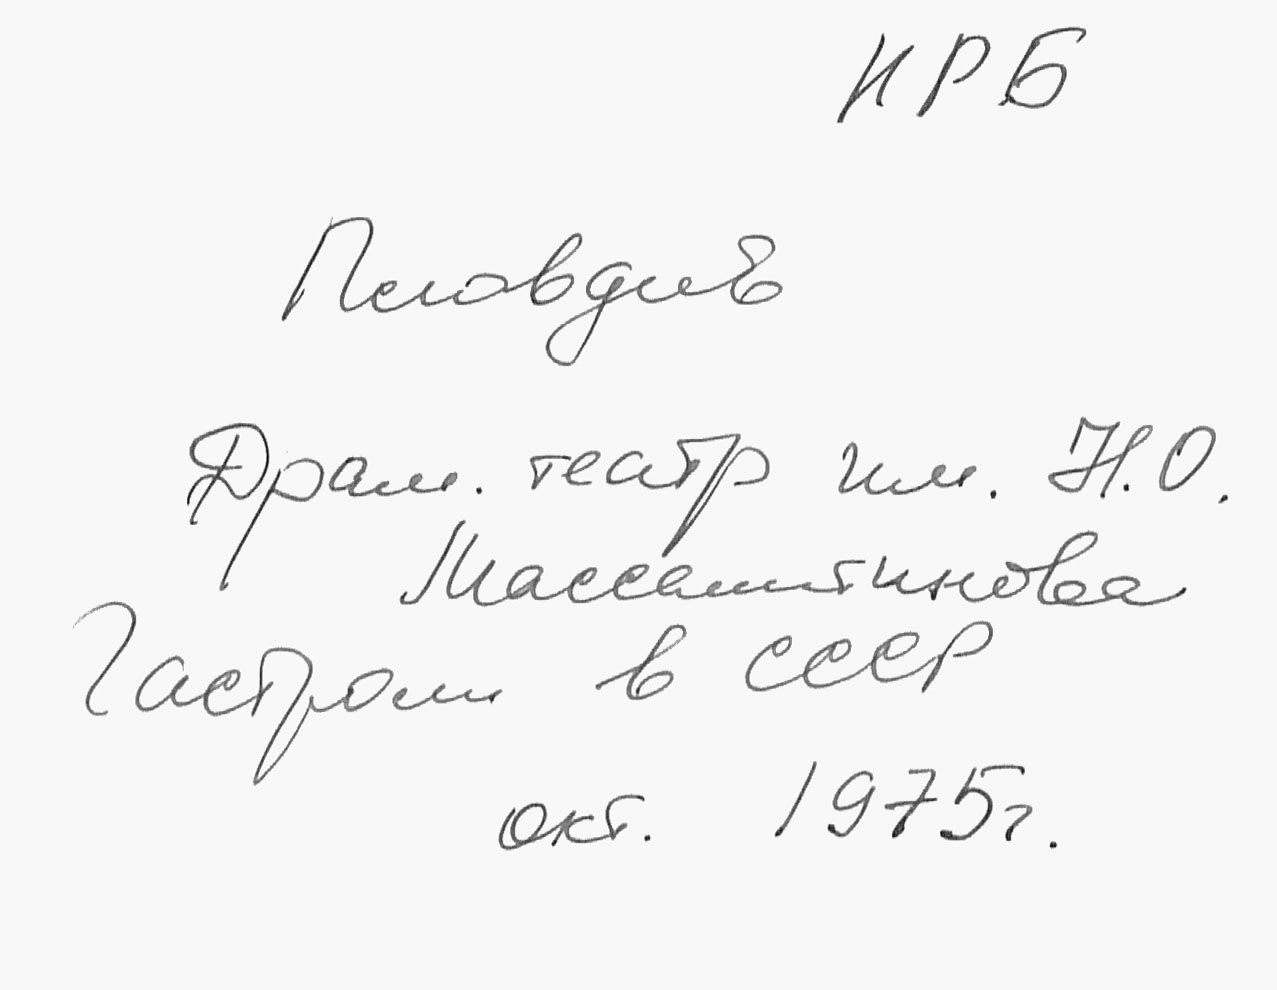 НРБ
Пловдив
Драм. театр им. Н.О.
Массалитинова
Гастроли в СССР
окт. 1975г.